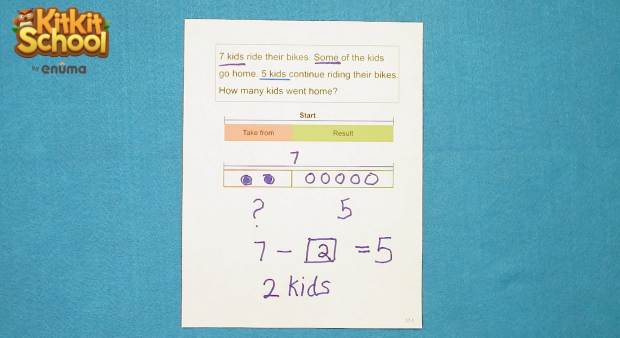 Kitkit
School
by enuma
7 kids ride their bikes. Some of the kids
go home. 5 kids continue riding their bikes.
How many kids went home?
Start
Take from Result
7
? 5
7 - 2 = 5
2 kids